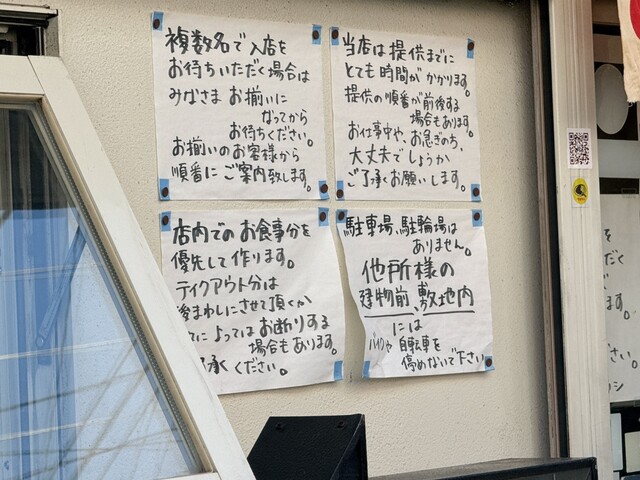 複数名で入店を
お待ちいただく場合は
みなさま お揃いに
なってから
お待ちください。
お揃いのお客様から
順番に ご案内致します。
当店は提供までに
とても時間がかかります。
提供の順番が前後する
場合もあります。
お仕事中や、お急ぎのち、
大丈夫でしょうか
ご了承くお願いします。
店内での お食事分を
優先して作ります。
テイクアウト分は
後まわしにさせて頂くか
よってはお断りする
場合もあります。
承ください。
駐車場、駐輪場は
ありません。
他所様の
建物前、敷地内
には
バイクや 自転車を
停めないで下さい